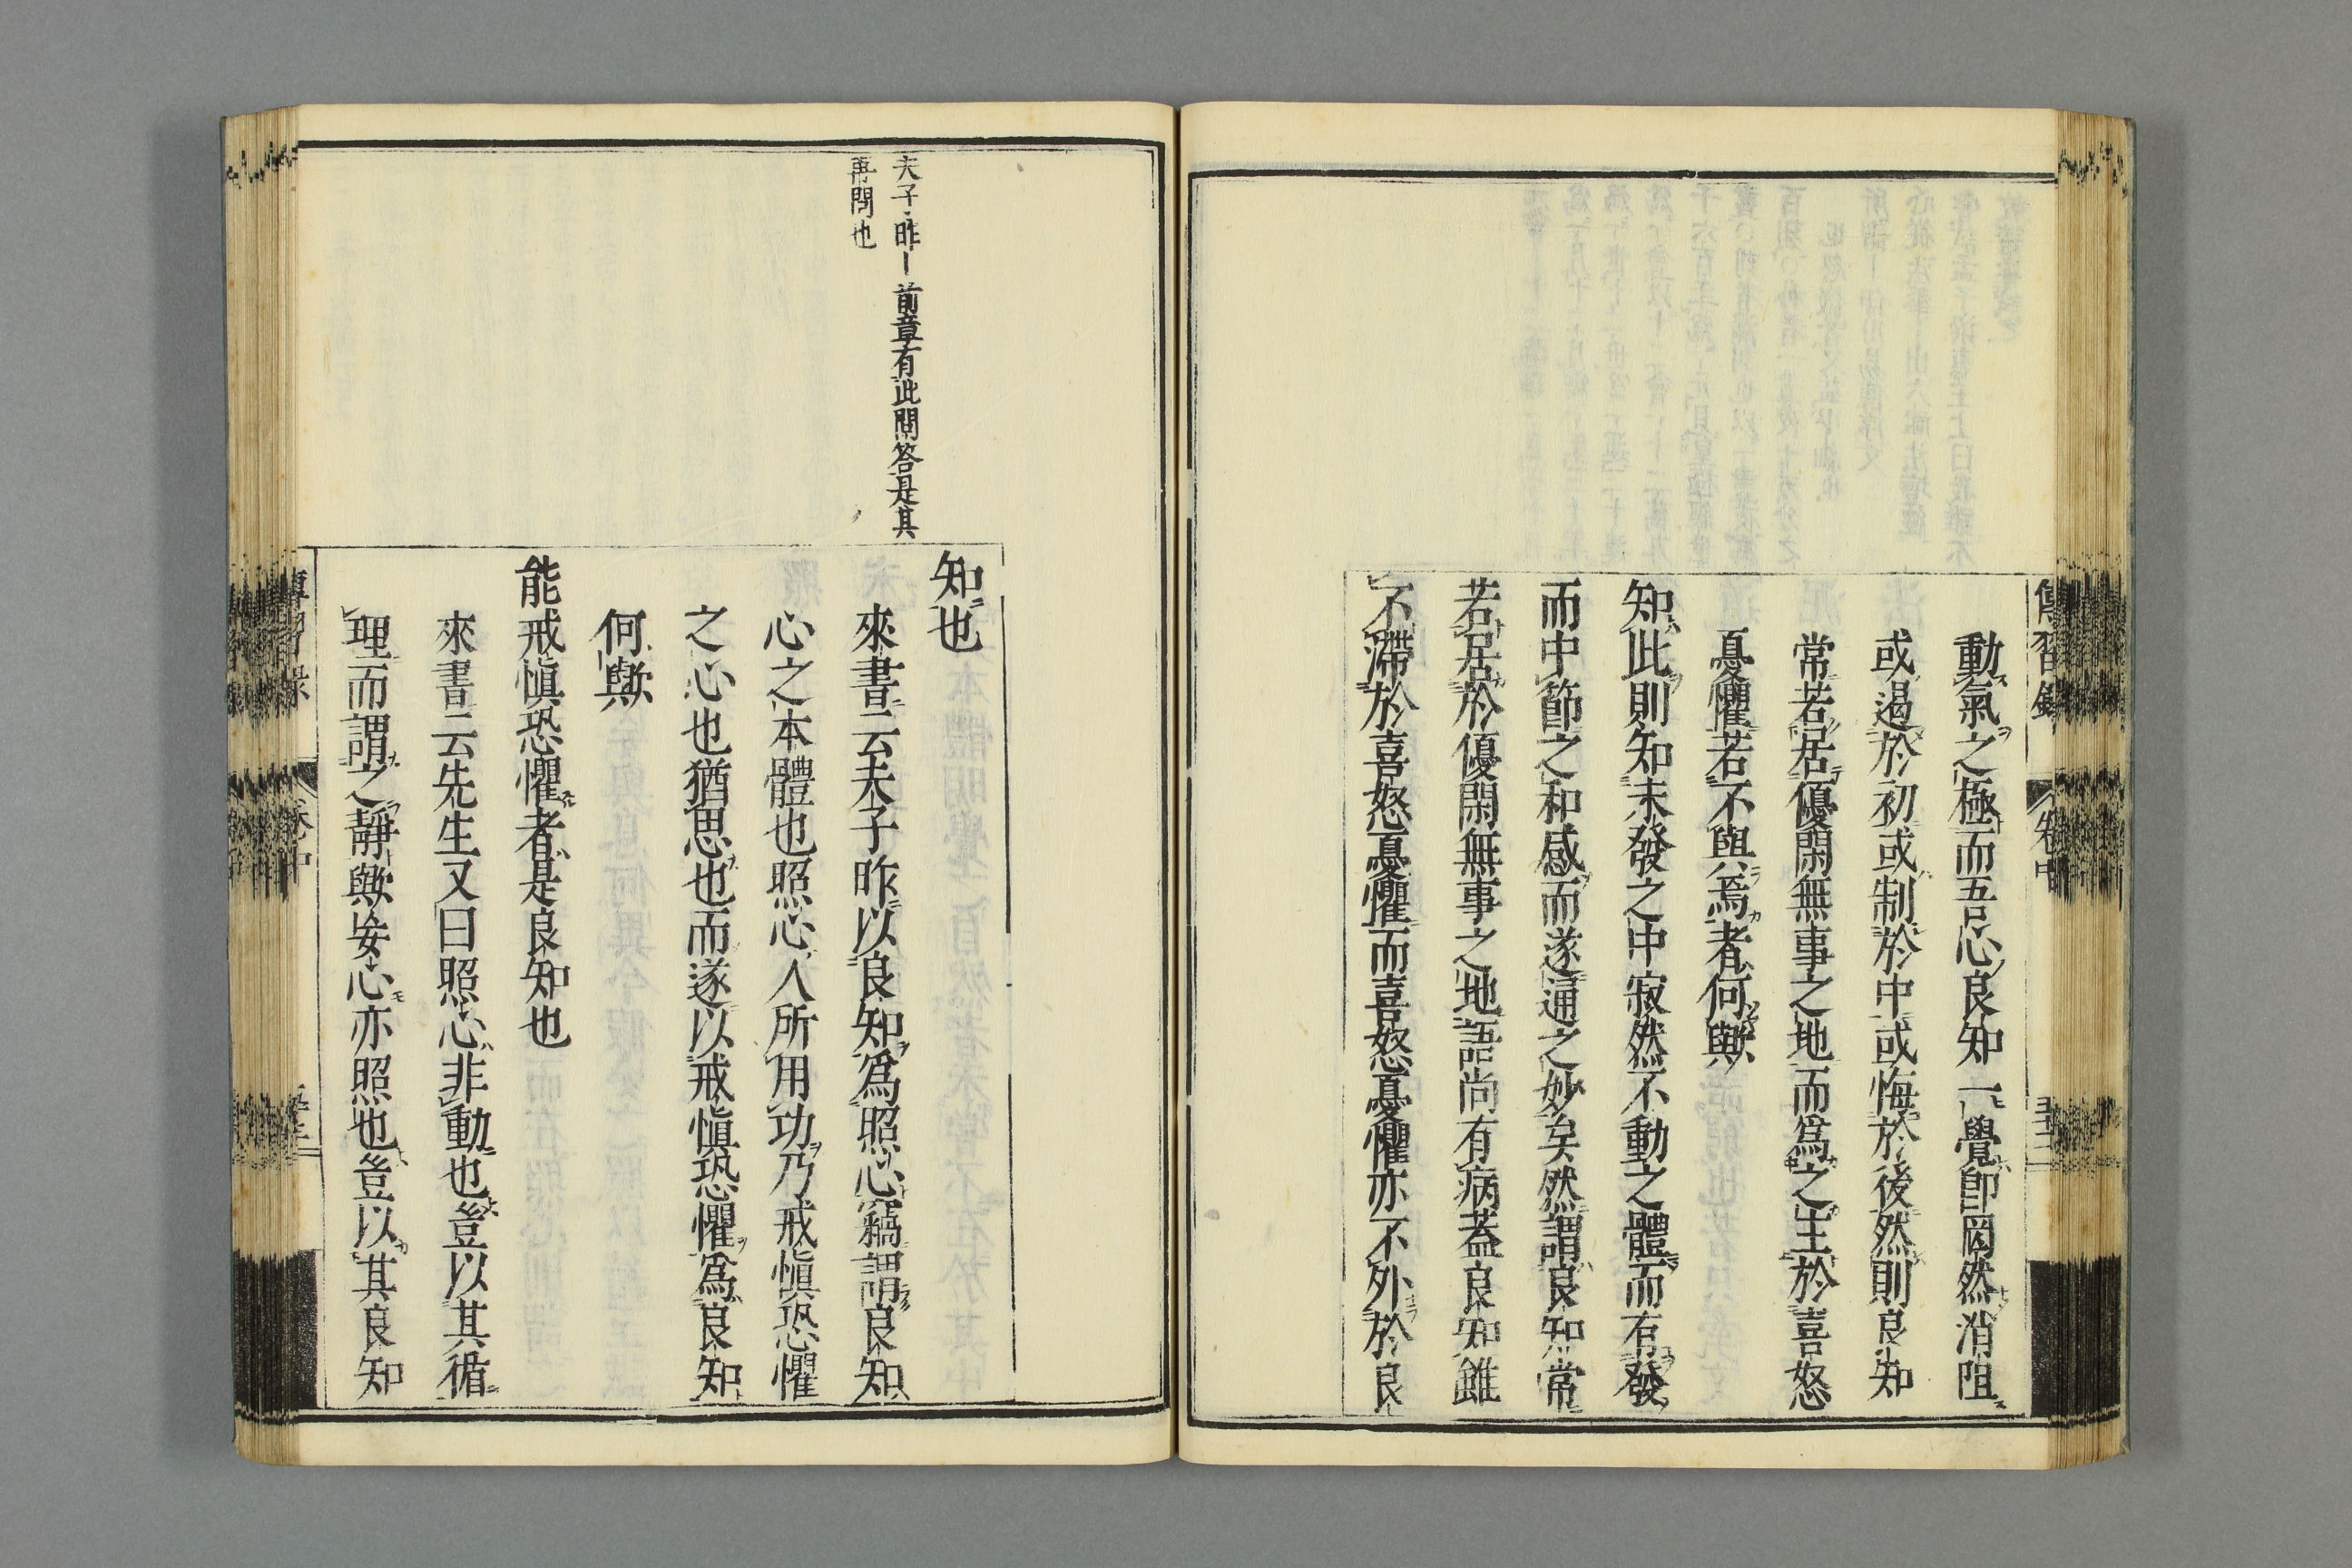 傳習錄 卷中
動氣之極而吾心良知一覺卽罔然消阻
或遏於初或制於中或悔於後然則良知
常若居優閑無事之地而爲之主於喜怒
憂懼若不與焉者何歟
知此則知未發之中寂然不動之體而有發
而中節之和感而遂通之妙矣然謂良知常
若居於優閑無事之地語尚有病蓋良知雖
不滯於喜怒憂懼而喜怒憂懼亦不外於良
夫子昨ー前章有此問答是其
再問也
知也
來書云夫子昨以良知爲照心竊謂良知
心之本體也照心人所用功乃戒愼恐懼
之心也猶思也而遂以戒愼恐懼爲良知
何歟
能戒愼恐懼者是良知也
來書云先生又曰照心非動也豈以其循
理而謂之靜歟妄心亦照也豈以其良知